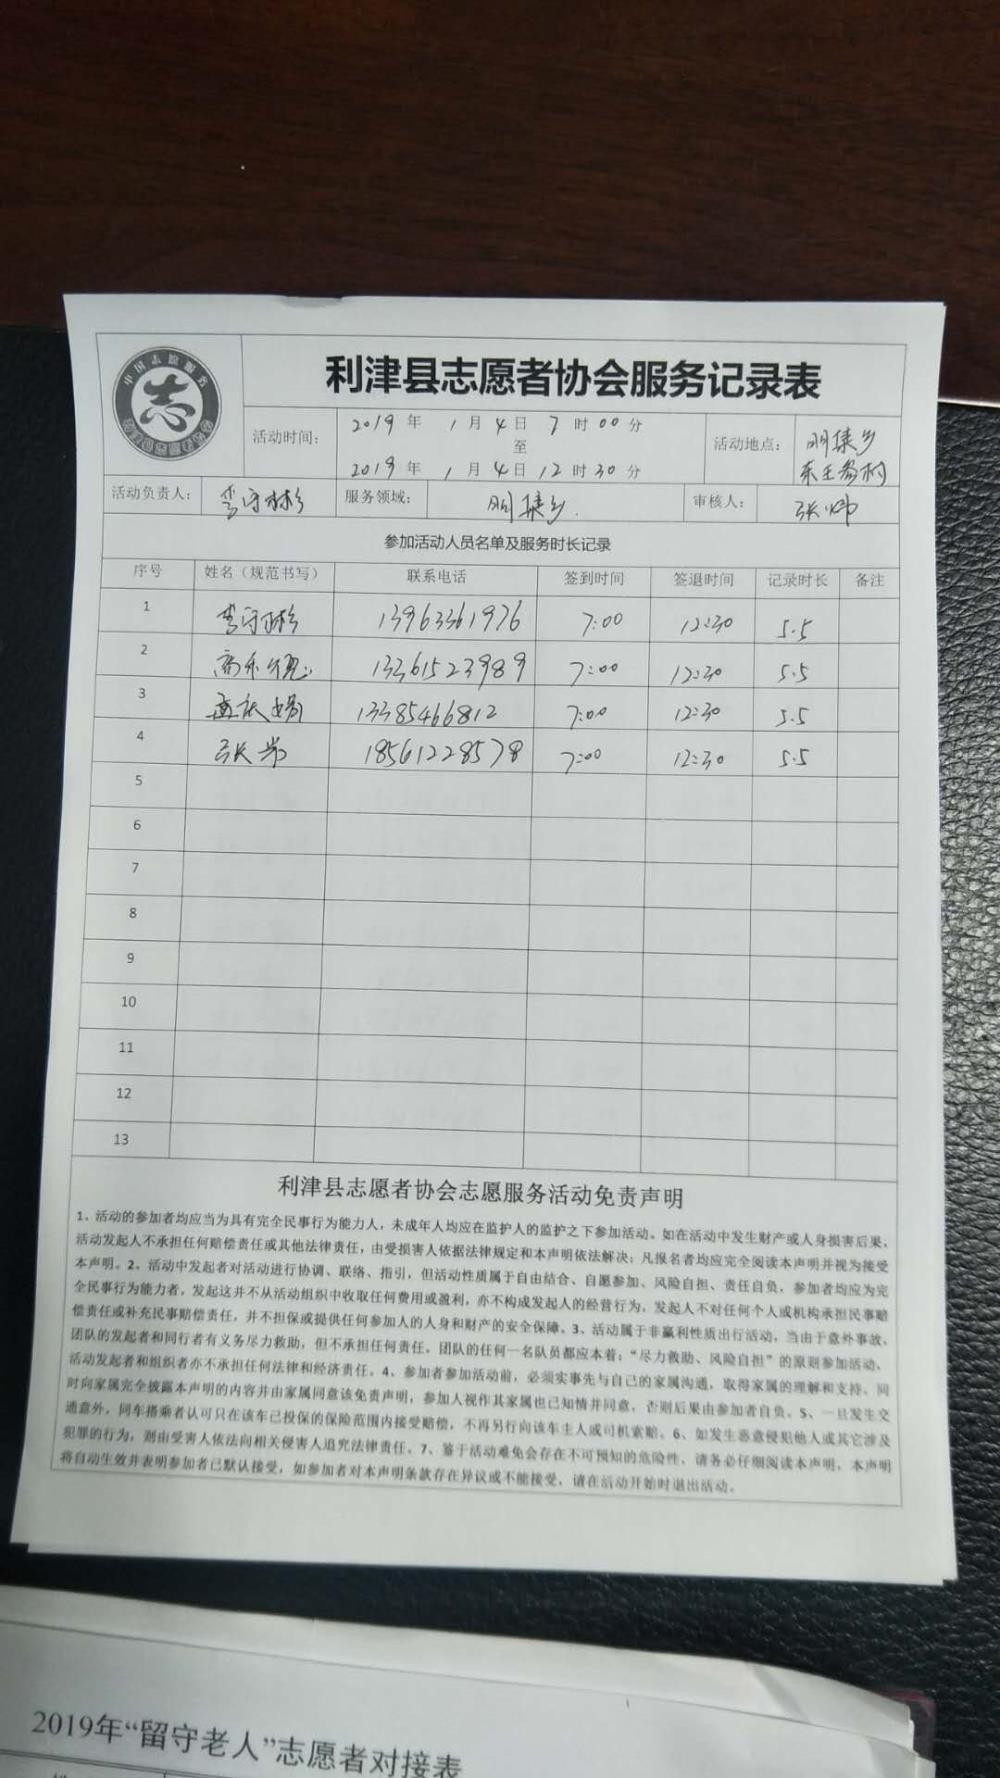 中国志愿服务
志
利津县志愿者协会服务记录表
活动时间：
2019 年 1 月 4 日 7 时 00 分
至
2019 年 1 月 4 日 12 时 30 分
活动地点：
明集乡
活动负责人：
李守彬
服务领域：
明集乡.
审核人：
张帅
参加活动人员名单及服务时长记录
序号 姓名（规范书写） 联系电话 签到时间 签退时间 记录时长 备注
1 李守彬 13963361976 7:00 12:30 5.5
2 13361523989 7:00 12:30 5.5
3 13385466812 7:00 12:30 5.5
4 18561228578 7:00 12:30 5.5
5
6
7
8
9
10
11
12
13
利津县志愿者协会志愿服务活动免责声明
1、活动的参加者均应当为具有完全民事行为能力人，未成年人均应在监护人的监护之下参加活动。如在活动中发生财产或人身损害后果，
活动发起人不承担任何赔偿责任或其他法律责任，由受损害人依据法律规定和本声明依法解决；凡报名者均应完全阅读本声明并视为接受
本声明。2、活动中发起者对活动进行协调、联络、指引，但活动性质属于自由结合、自愿参加、风险自担、责任自负，参加者均应为完
全民事行为能力者，发起这并不从活动组织中收取任何费用或盈利，亦不构成发起人的经营行为，发起人不对任何个人或机构承担民事赔
偿责任或补充民事赔偿责任，并不担保或提供任何参加人的人身和财产的安全保障。3、活动属于非赢利性质出行活动，当由于意外事故，
团队的发起者和同行者有义务尽力救助，但不承担任何责任。团队的任何一名队员都应本着：“尽力救助、风险自担”的原则参加活动、
活动发起者和组织者亦不承担任何法律和经济责任。4、参加者参加活动前，必须实事先与自己的家属沟通，取得家属的理解和支持。同
时向家属完全披露本声明的内容并由家属同意该免责声明，参加人视作其家属也已知情并同意，否则后果由参加者自负。5、一旦发生交
通意外，同车搭乘者认可只在该车已投保的保险范围内接受赔偿，不再另行向该车主人或司机索赔。6、如发生恶意侵犯他人或其它涉及
犯罪的行为，则由受害人依法向相关侵害人追究法律责任。7、鉴于活动难免会存在不可预知的危险性，请务必仔细阅读本声明，本声明
将自动生效并表明参加者已默认接受，如参加者对本声明条款存在异议或不能接受，请在活动开始时退出活动。
2019年“留守老人”志愿者对接表